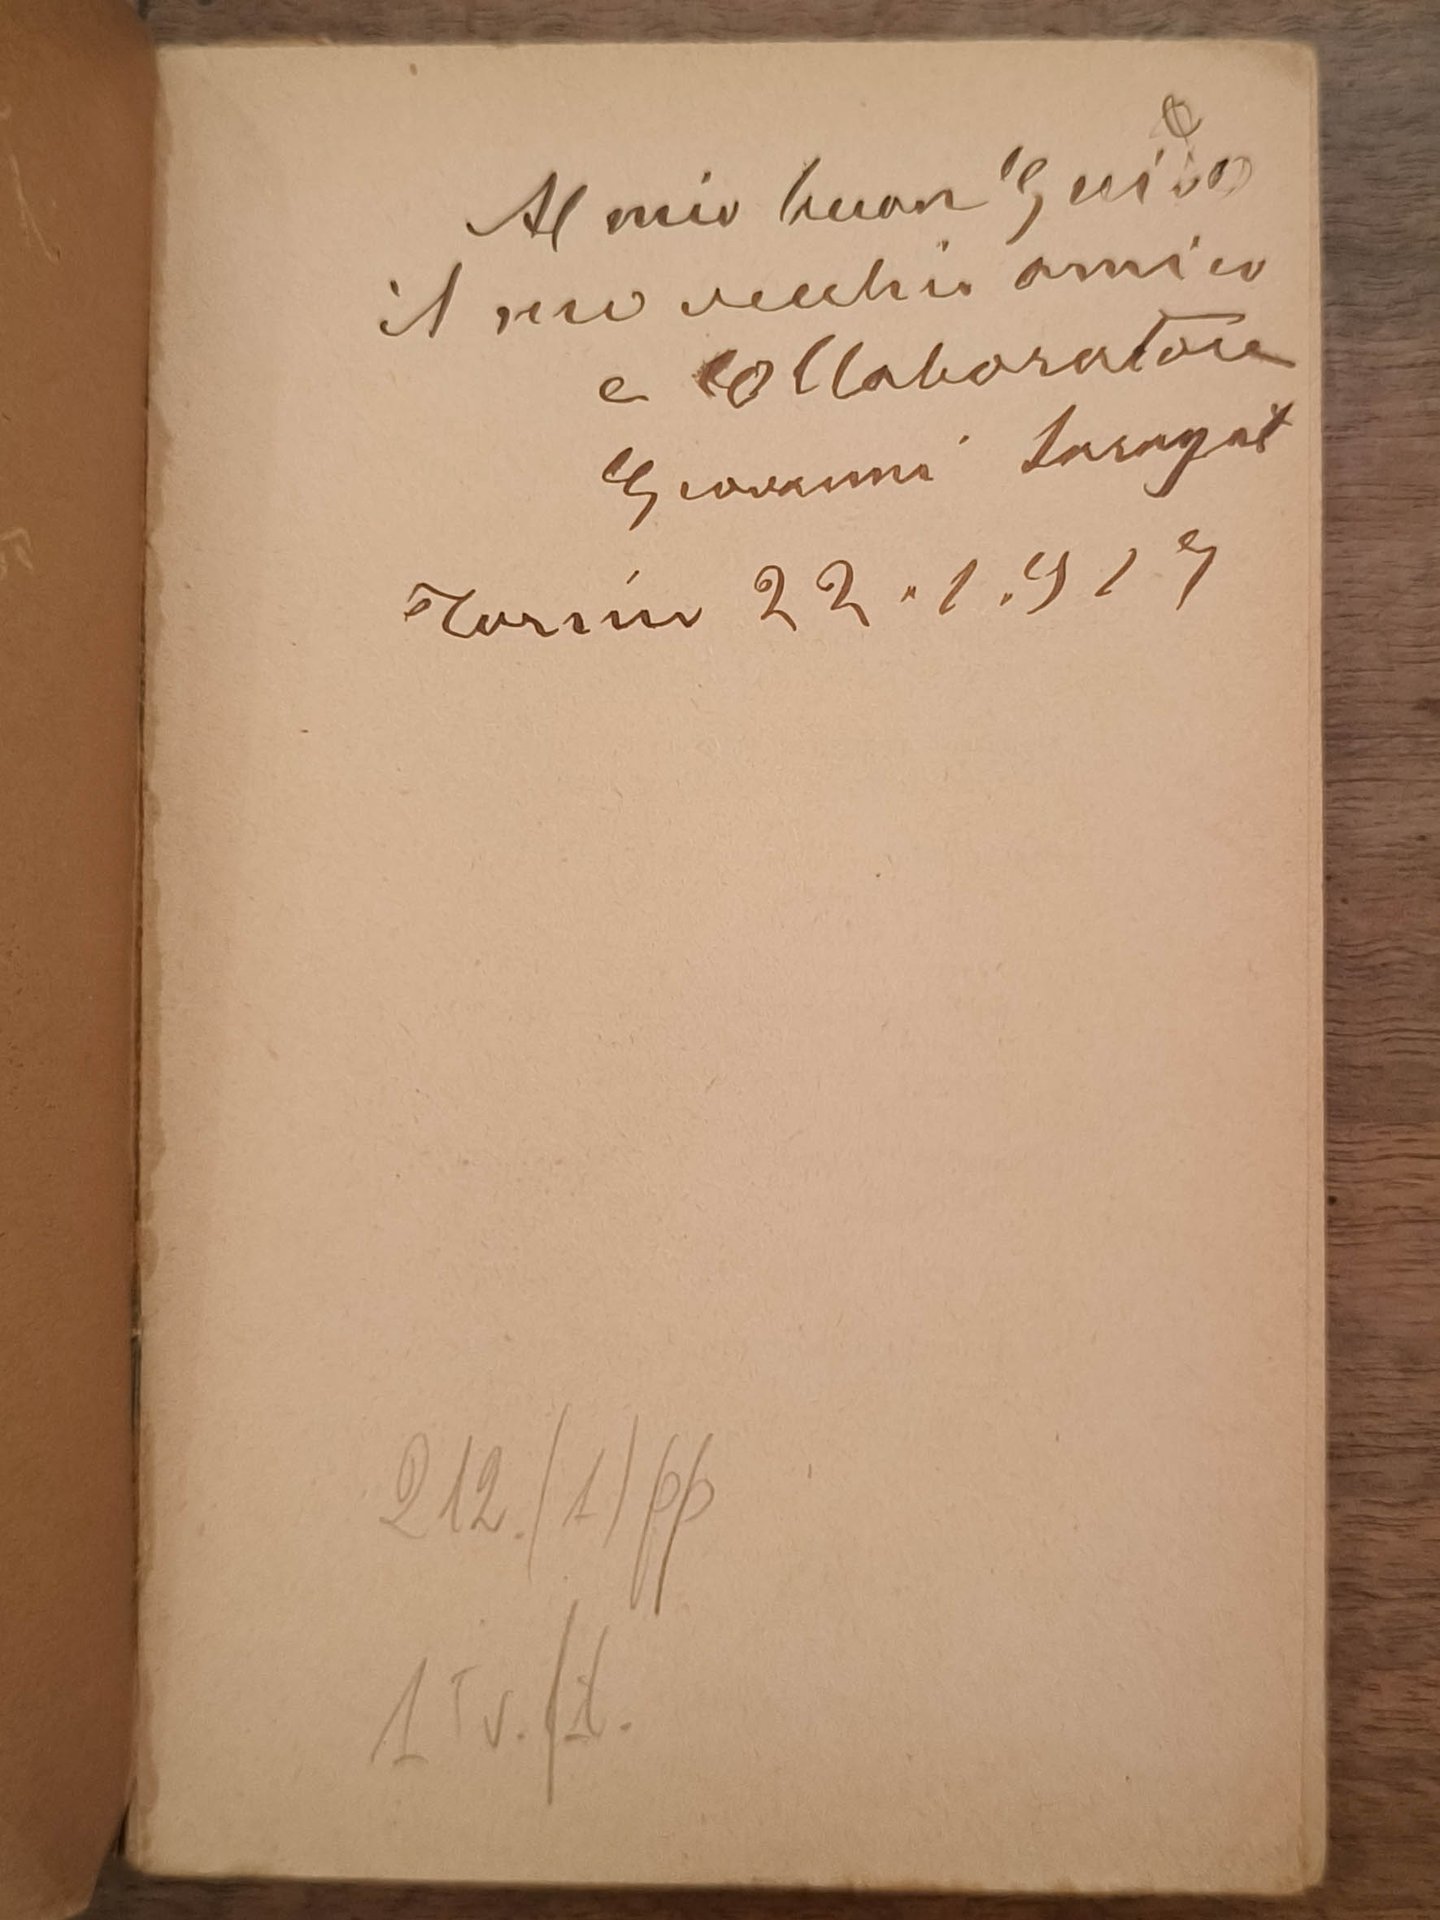 Al mio buon Guido
il suo vecchio amico
e Collaboratore
Giovanni Saragat
Torino 22.1.919
212.(1)pp